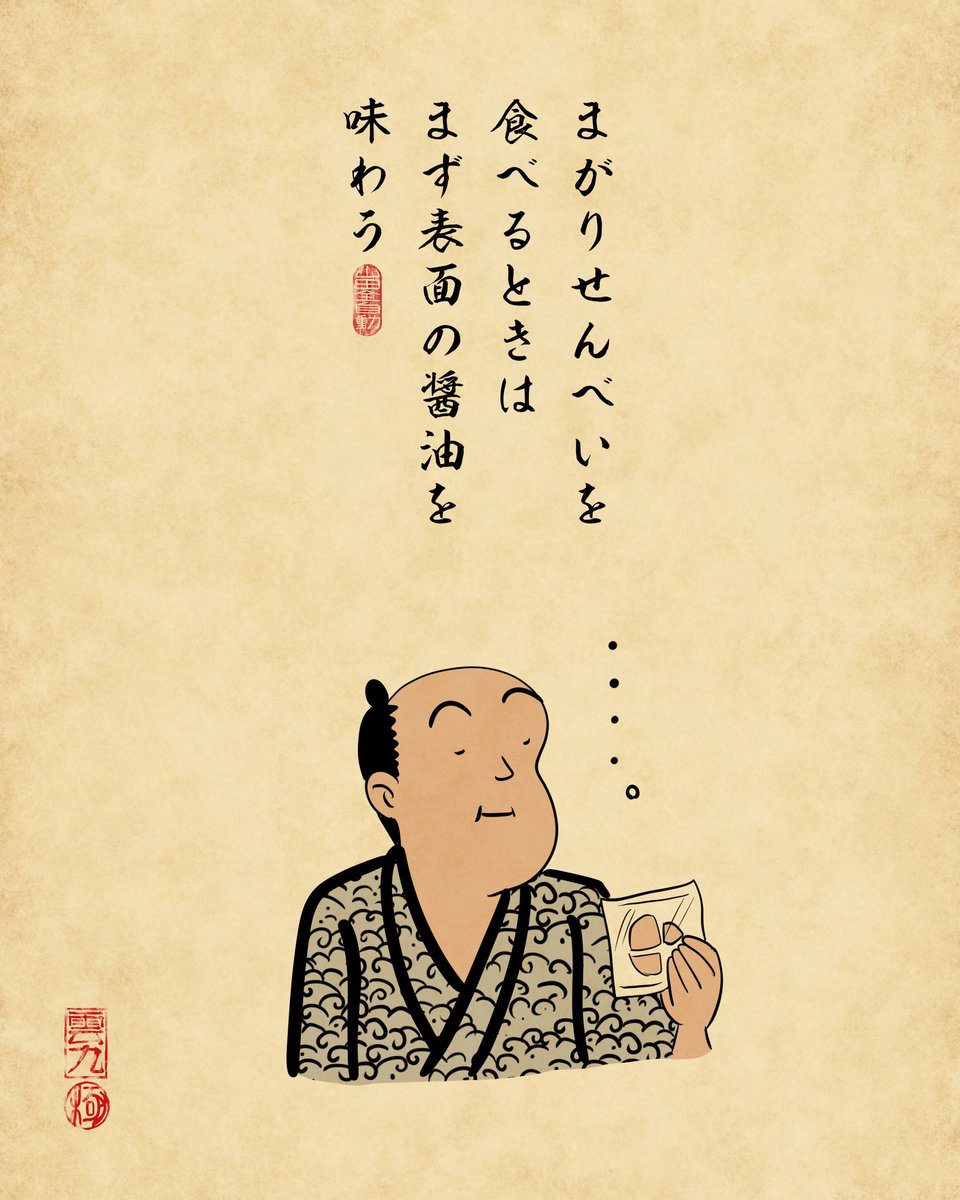 まがりせんべいを
食べるときは
まず表面の醤油を
味わう